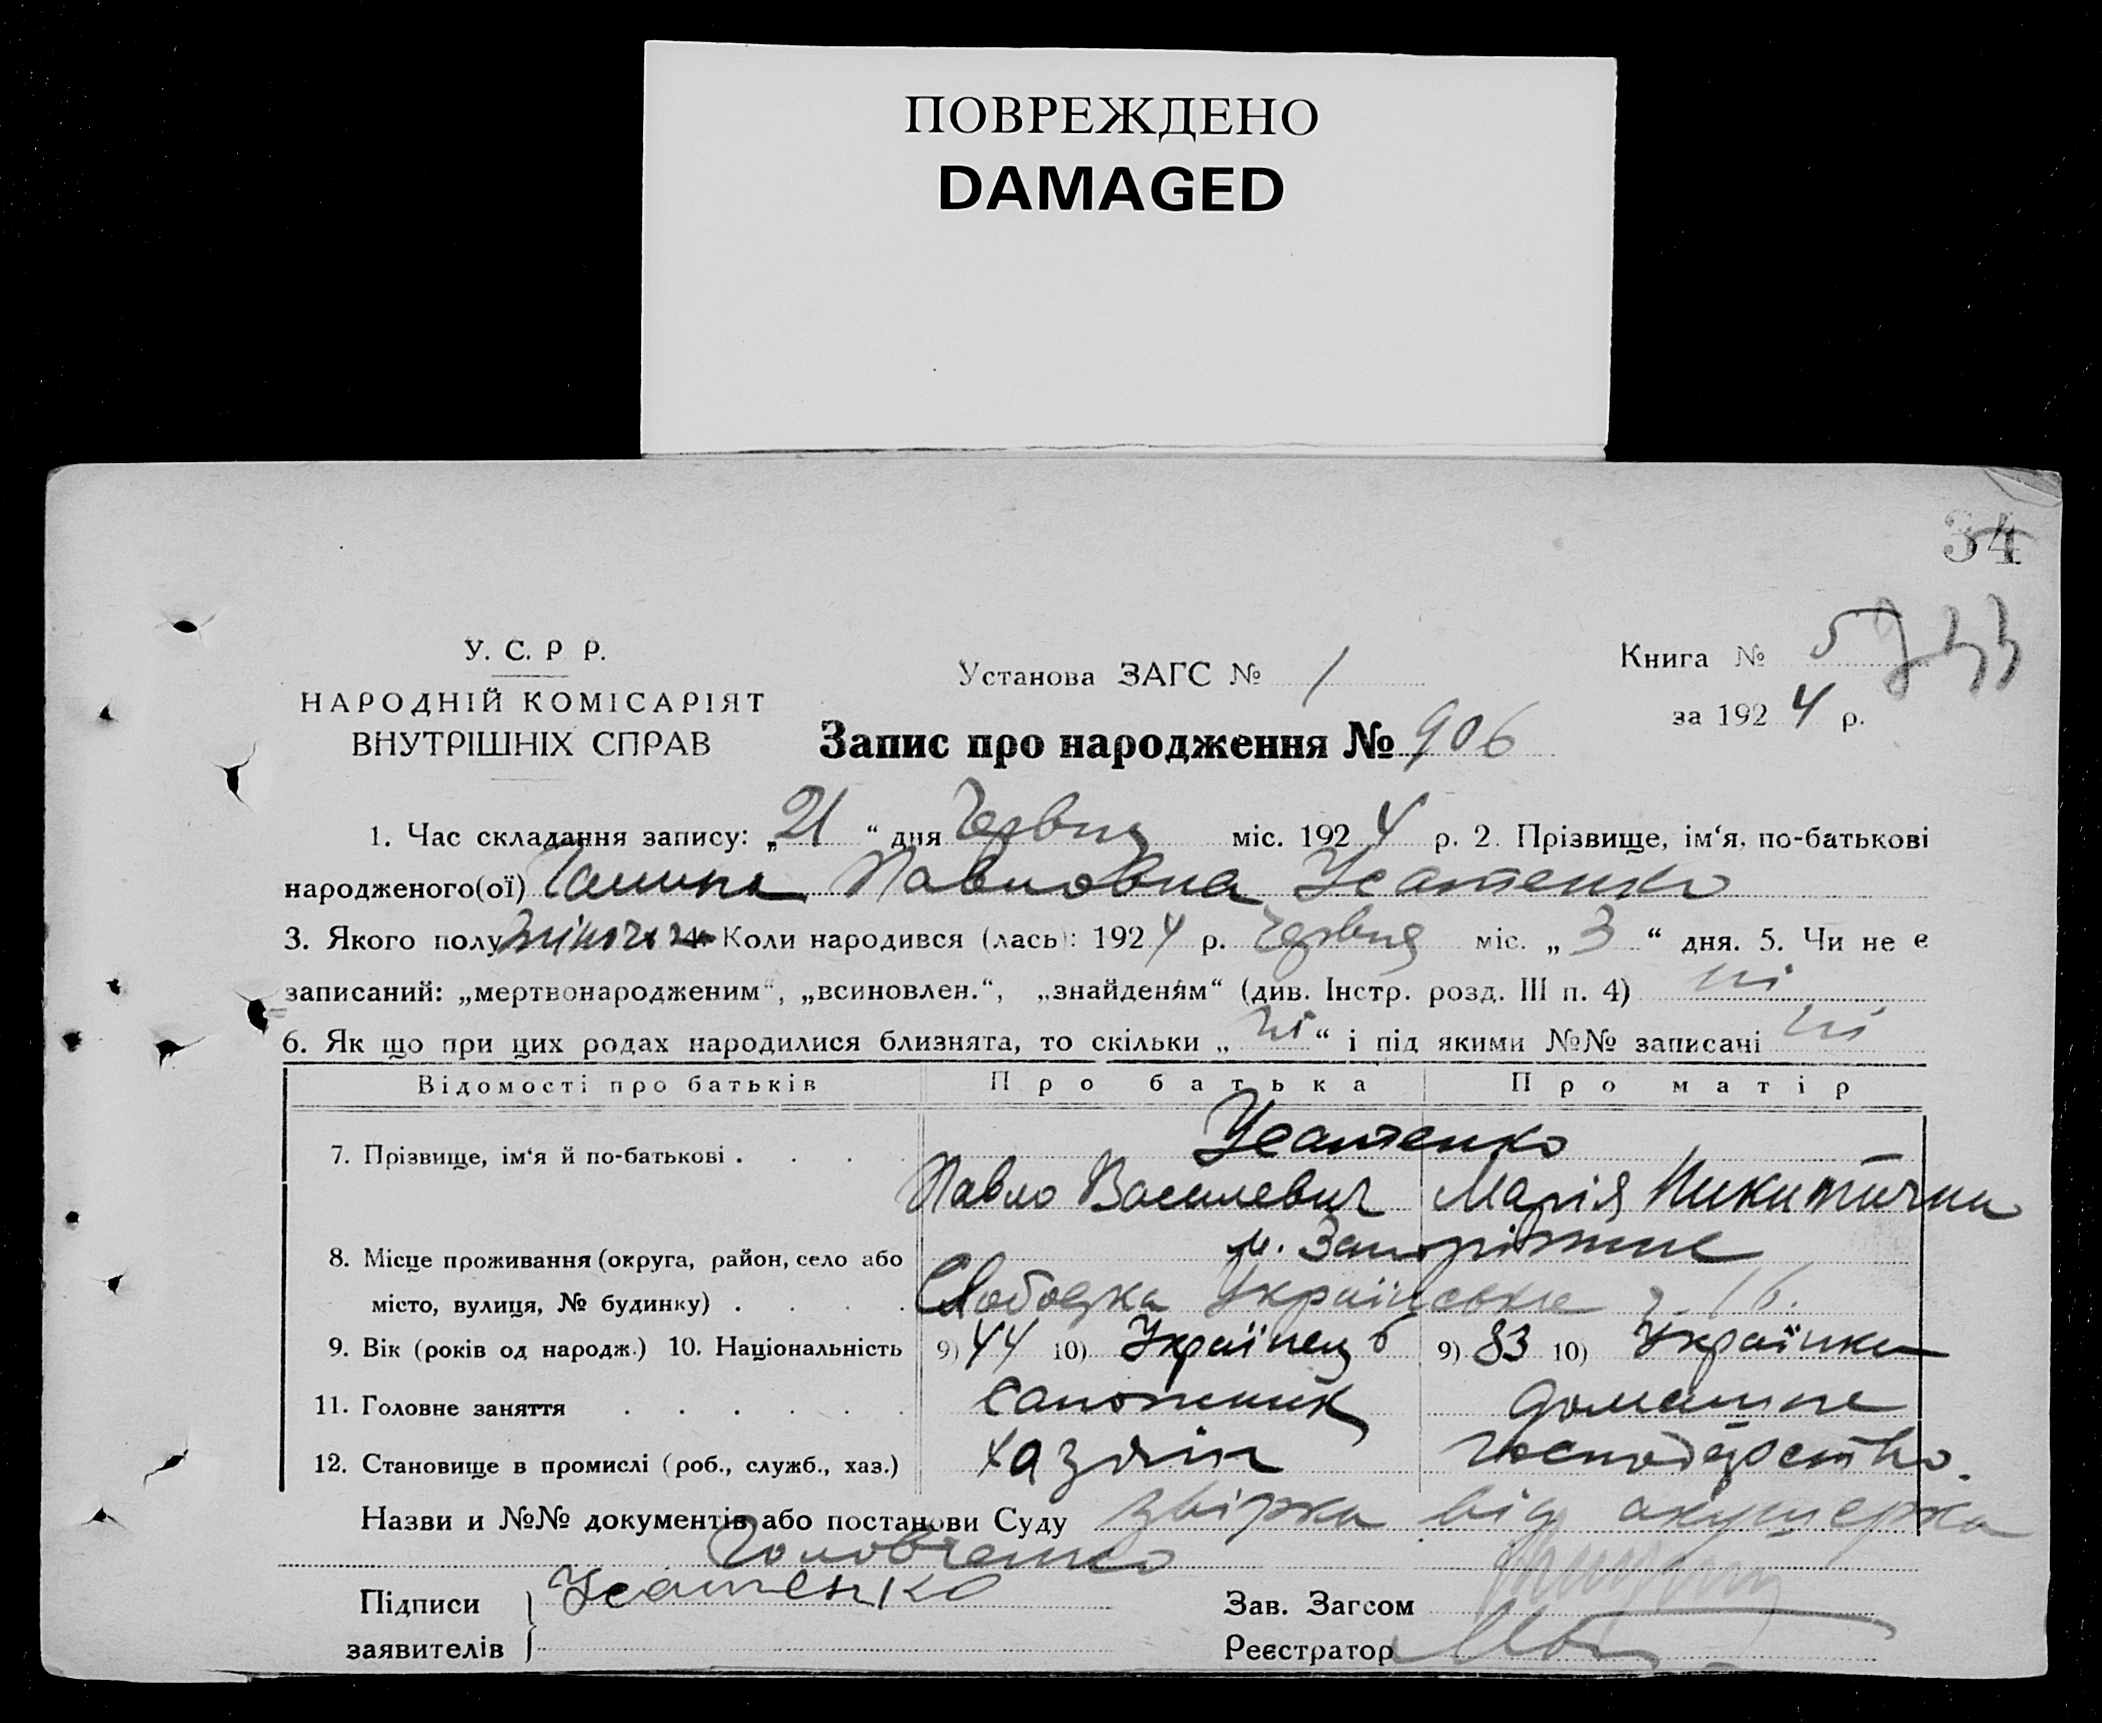 ПОВРЕЖДЕНО
DAMAGED
34
У. С. Р Р.
НАРОДНІЙ КОМІСАРІЯТ
ВНУТРІШНІХ СПРАВ
Установа ЗАГС № 1
Книга № 5
за 1924 р.
Запис про народження № 906
1. Час складання запису: „21“ дня Червня міс. 1924 р. 2. Прізвище, ім‘я, по-батькові
народженого(ої) Галина Павловна Усатенко
3. Якого полу жіночи 4. Коли народився (лась): 1924 р. Червня міс. „3“ дня. 5. Чи не є
записаний: „мертвонародженим“, „всиновлен.“, „знайденям“ (див. Інстр. розд. III п. 4) ні
6. Як що при цих родах народилися близнята, то скільки „ні“ і під якими №№ записані ні
Відомості про батьків Про батька Про матір
7. Прізвище, ім‘я й по-батькові . . . . Усатенко
Павло Василевич Марія Никитична
8. Місце проживання (округа, район, село або м. Запоріжжє
місто, вулиця, № будинку) . . . . Слободка Українська 16.
9. Вік (років од народж.) 10. Національність 9) 44 10) Українец 9) 33 10) Українка
11. Головне заняття . . . . . . Сапожник домашне
12. Становище в промислі (роб., служб., хаз.) хазяін господарство.
Назви и №№ документів або постанови Суду звірка від акушерка
Головченко
Підписи Усатенко Зав. Загсом
заявителів Реєстратор